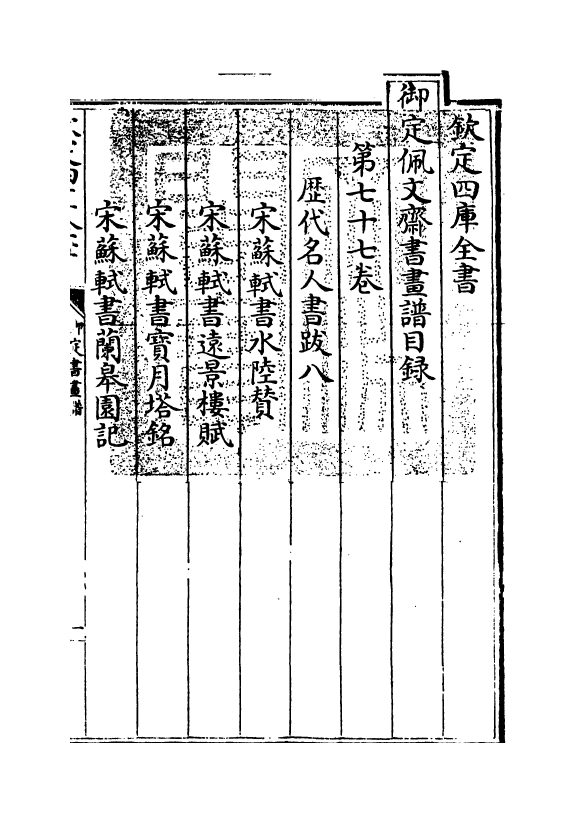 欽定四庫全書
御定佩文齋書畫譜目録
第七十七卷
歴代名人書跋八
宋蘇軾書水陸賛
宋蘇軾書遠景樓賦
宋蘇軾書寳月塔銘
宋蘇軾書蘭皋園記
御定書畫譜
一